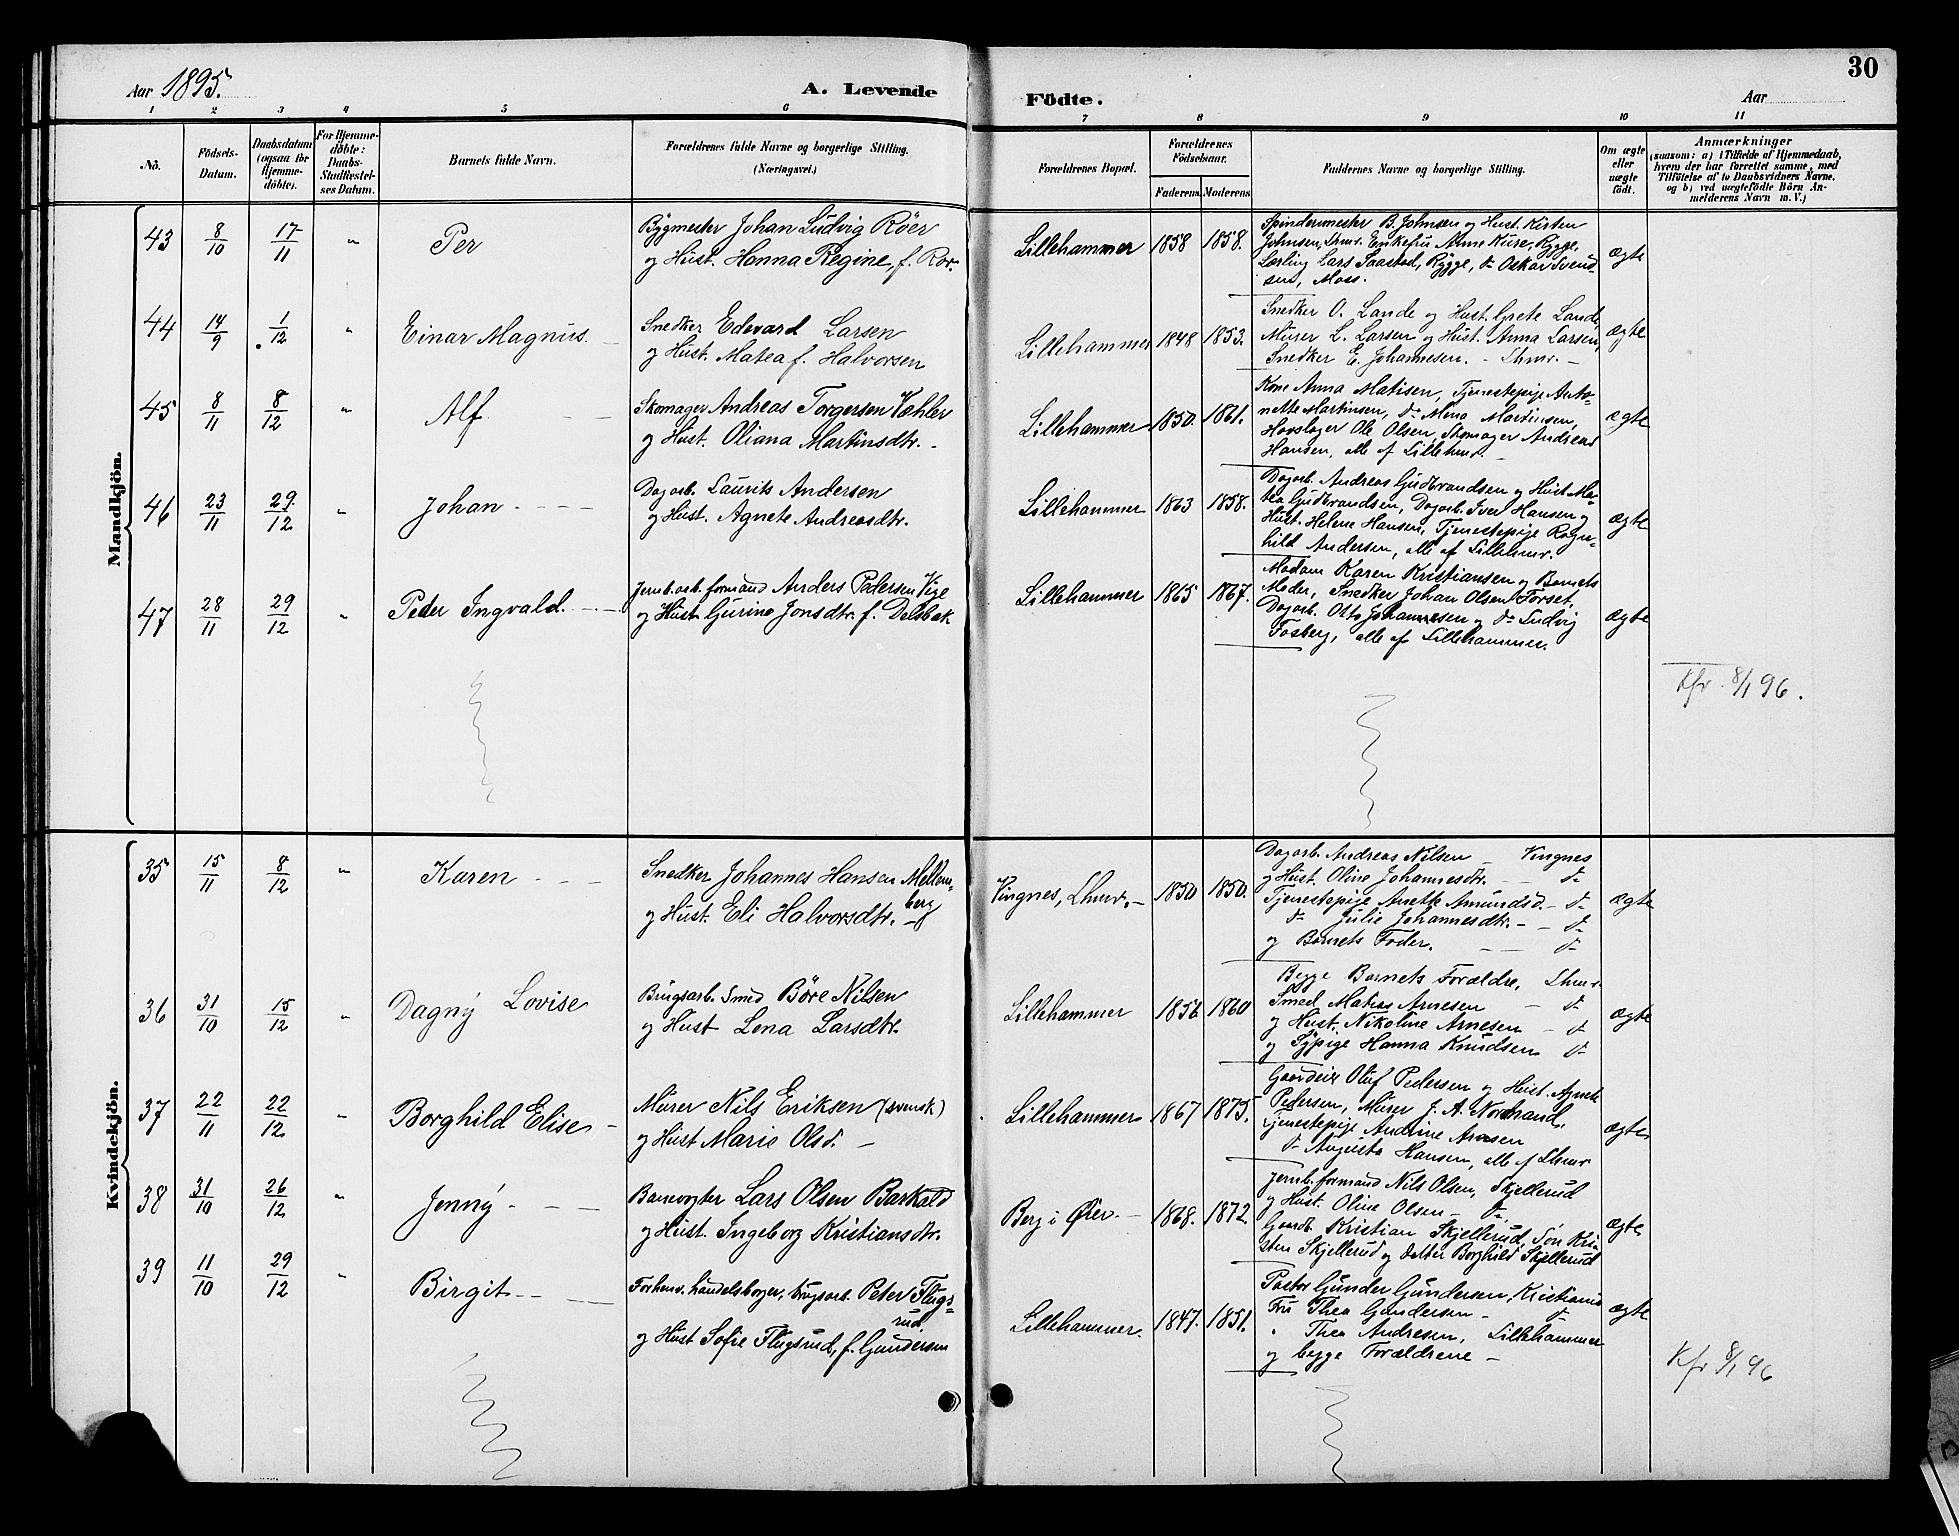 Aar 1895.
A. Levende
Födte.
Aar
30
1 2 3 4 5 6 7 8 9 10 11
No.
Födsels-
Datum.
Daabsdatum
(ogsaa for
Hjemme-
döbte).
For Hjemme-
döbte:
Daabs-
Stadfæstel-
ses Datum.
Barnets fulde Navn.
Forældrenes fulde Navne og borgerlige Stilling.
(Næringsvei.)
Forældrenes Bopæl.
Forældrenes
Födselsaar.
Faderens. Moderens.
Faddernes Navne og borgerlige Stilling.
Om ægte
eller
uægte
födt.
Anmærkninger
(saasom: a) i Tilfælde af Hjemmedaab,
hvem der har forrettet samme, med
Tilföielse af to Daabsvidners Navne.
og b) ved uægtefödte Börn An-
melderens Navn m. V.)
Mandkjön.
43 8/10 17/11 " Per
Bygmester Johan Ludvig Röer
og Hust. Hanna Regine, f. Roer.
Lillehammer 1858 1858.
Spindemester B. Johnsen og Hust. Kirsten
Johnsen, Lhmr. Enkefru Anne Kuse, Rygge,
Lærling Lars Saastad, Rygge, do Oskar Svend-
sen, Moss.
ægte
44 14/9 1/12 " Einar Magnus.
Snedker Edevard Larsen
og Hust. Matea f. Halvorsen
Lillehammer 1848 1853.
Snedker O. Lande og Hust. Grete Lande,
Murer L. Larsen og Hust. Anna Larsen,
Snedker E. Johannesen. - Lhmr. -
ægte
45 8/11 8/12 " Alf.
Skomager Andreas Torgersen Væhler
og Hust. Oliana Martinsdtr. -
Lillehammer 1850. 1861.
Kone Anna Matisen, Tjenestepige Anto-
nette Martinsen, do Mina Martinsen,
Hovslager Ole Olsen, Skomager Andreas
Hansen, alle af Lillehmr.
ægte
46 23/11 29/12 " Johan
Dagarb. Laurits Andersen
og Hust. Agnete Andreasdtr.
Lillehammer 1863 1858.
Dagarb. Andreas Gudbrandsen og Hust. Ma-
tea Gudbrandsen, Dagarb. Iver Hansen og
Hust. Helene Hansen, Tjenestepige Ragn-
hild Andersen, alle af Lillehmr.
ægte
47 28/11 29/12 " Peder Ingvald.
Jernb.arb. formand Anders Pedersen Vige
og Hust. Gurine Jonsdtr. f. Delsbak
Lillehammer 1865 1867.
Madam Karen Kristiansen og Barnets
Moder, Snedker Johan Olsen Forset,
Dagarb. Otto Johannesen og do Ludvig
Fosberg, alle af Lillehammer.
ægte
Kfr. 8/1 96.
Kvindekjön.
35 15/11 8/12 " Karen
Snedker Johannes Hansen Mellem-
berg
og Hust. Eli Halvorsdtr. -
Vingnes, Lhmr. - 1850 1850.
Dagarb. Andreas Nilsen - Vingnes
og Hust. Oline Johannesdtr. - do
Tjenestepige Anette Amundsd. - do
do Julie Johannesdtr. - - do
og Barnets Fader. - do
ægte
36 31/10 15/12 " Dagny Lovise
Brugsarb. Smed Böre Nilsen
og Hust Lena Larsdtr.
Lillehammer 1856 1860
Begge Barnets Forældre, Lhmr.
Smed Matias Arnesen - do
og Hust. Nikoline Arnesen - do
og Sypige Hanna Knudsen do
ægte
37 22/11 22/12 " Borghild Elise -
Murer Nils Eriksen (svensk)
og Hust Marie Olsd. -
Lillehammer 1867 1875.
Gaardeier Oluf Pedersen og Hust. Agnete
Pedersen, Murer J. A. Nordstrand,
Tjenestepige Andrine Arnesen
do Augusta Hansen, alle af Lhmr
ægte
38 31/10 26/12 " Jenny
Banevogter Lars Olsen Barkald
og Hust. Ingeborg Kristiansdtr.
Berg i Öier. - 1868. 1872.
Jernb.formand Nils Olsen, Skjellerud
og Hust. Oline Olsen - do,
Gaardb. Kristian Skjellerud, Sön Kri-
sten Skjellerud og datter Borghild Skjellerud
ægte
39 11/10 29/12 " Birgit
Forhenv. handelsborger, brugsarb. Peter Flugs-
rud,
og Hust Sofie Flugsrud, f. Gundersen
Lillehammer. 1847. 1851.
Pastor Gunder Gundersen, Kristiania
Fru Thea Gundersen - do
" Thea Andresen, Lillehammer
og begge Forældrene -
ægte
Kfr 8/1 96